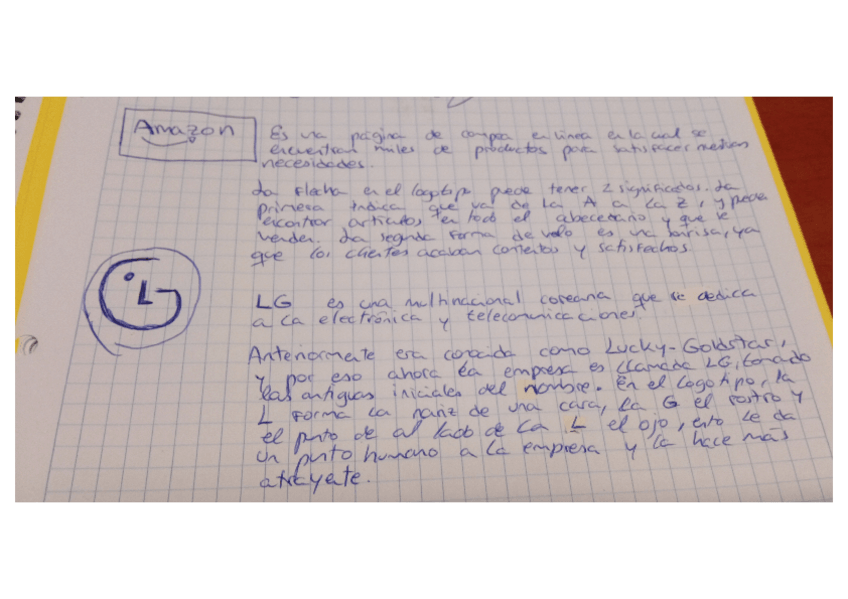 Amazon
Es una página de compra en línea en la cual se
encuentran miles de productos para satisfacer
necesidades.
La flecha en el logotipo puede tener 2 significados. La
primera indica que va de la A a la Z, y puede
encontrar artículos en todo el abecedario y que se
venden. La segunda forma de verlo es una sonrisa, ya
que los clientes acaban contentos y satisfechos.
LG
LG es una multinacional coreana que se dedica
a la electrónica y telecomunicaciones.
Anteriormente era conocida como Lucky-Goldstar,
y por eso ahora la empresa es llamada LG, tomando
las antiguas iniciales del nombre. En el logotipo, la
L forma la nariz de una cara, la G el rostro y
el punto de al lado de la L el ojo, esto le da
un punto humano a la empresa y la hace más
atrayete.